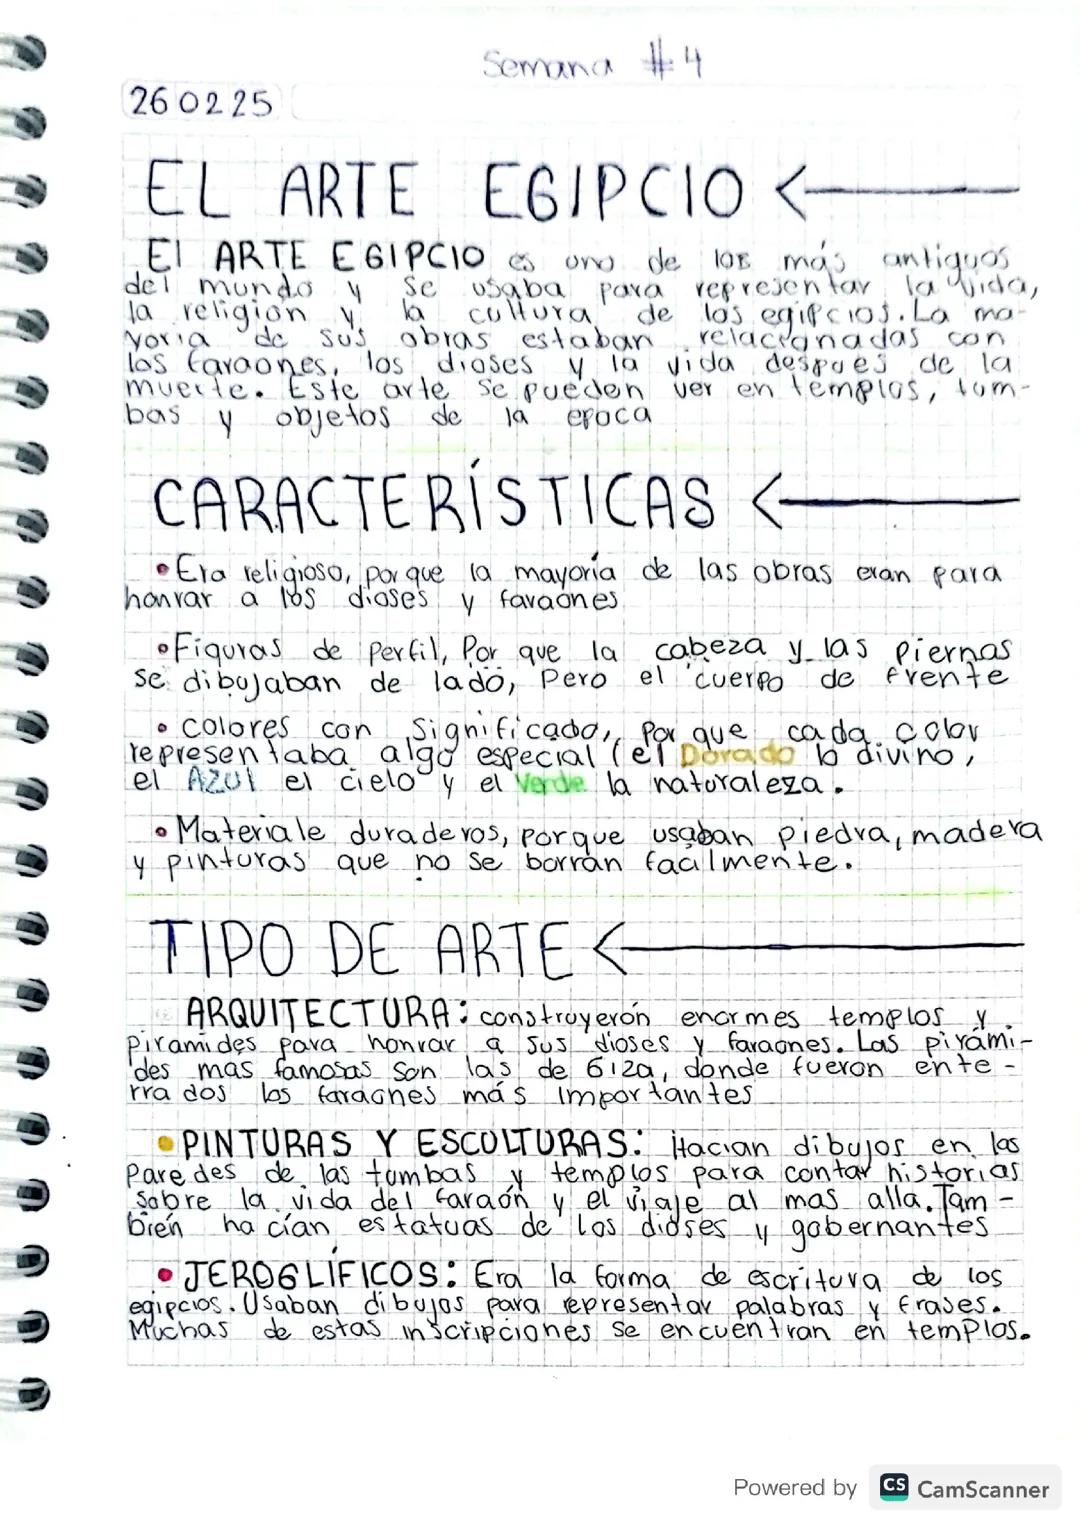 Semana #4
260225
EL ARTE EGIPCIO
El ARTE EGIPCIO es uno de los más antiguos
del mundo y se usaba para representar la vida,
la religión y la cultura de los egipcios. La ma-
yoria de sus obras estaban relacionadas con
los faraones, los dioses y la vida despues de la
muerte. Este arte se pueden ver en templos, tum-
bas y objetos de la epoca
CARACTERÍSTICAS
• Era religioso, porque la mayoría de las obras eran para
honrar a los dioses y faraones
• Figuras de perfil, Por que la cabeza y las piernas
se dibujaban de lado, Pero el cuerpo de frente
• colores con significado, Por que cada color
representaba algo especial (el Dorado lo divino,
el AZUl el cielo y el Verde la naturaleza.
• Materiale duraderos, porque usaban piedra, madera
y pinturas que no se borran facilmente.
TIPO DE ARTE
ARQUITECTURA: construyerón enormes templos y
Piramides para honrar a sus dioses y faraones. Las pirámi-
des mas famosas son las de Giza, donde fueron ente-
rrados los faraones más importantes
• PINTURAS Y ESCULTURAS: Hacian dibujos en las
Paredes de las tumbas y templos para contar historias
sobre la vida del faraón y el viaje al mas alla. Tam-
bien hacían estatuas de los dioses y gobernantes
• JEROGLÍFICOS: Era la forma de escritura de los
egipcios. Usaban dibujos para representar palabras y frases.
Muchas de estas inscripciones se encuentran en templos.
Powered by CS CamScanner